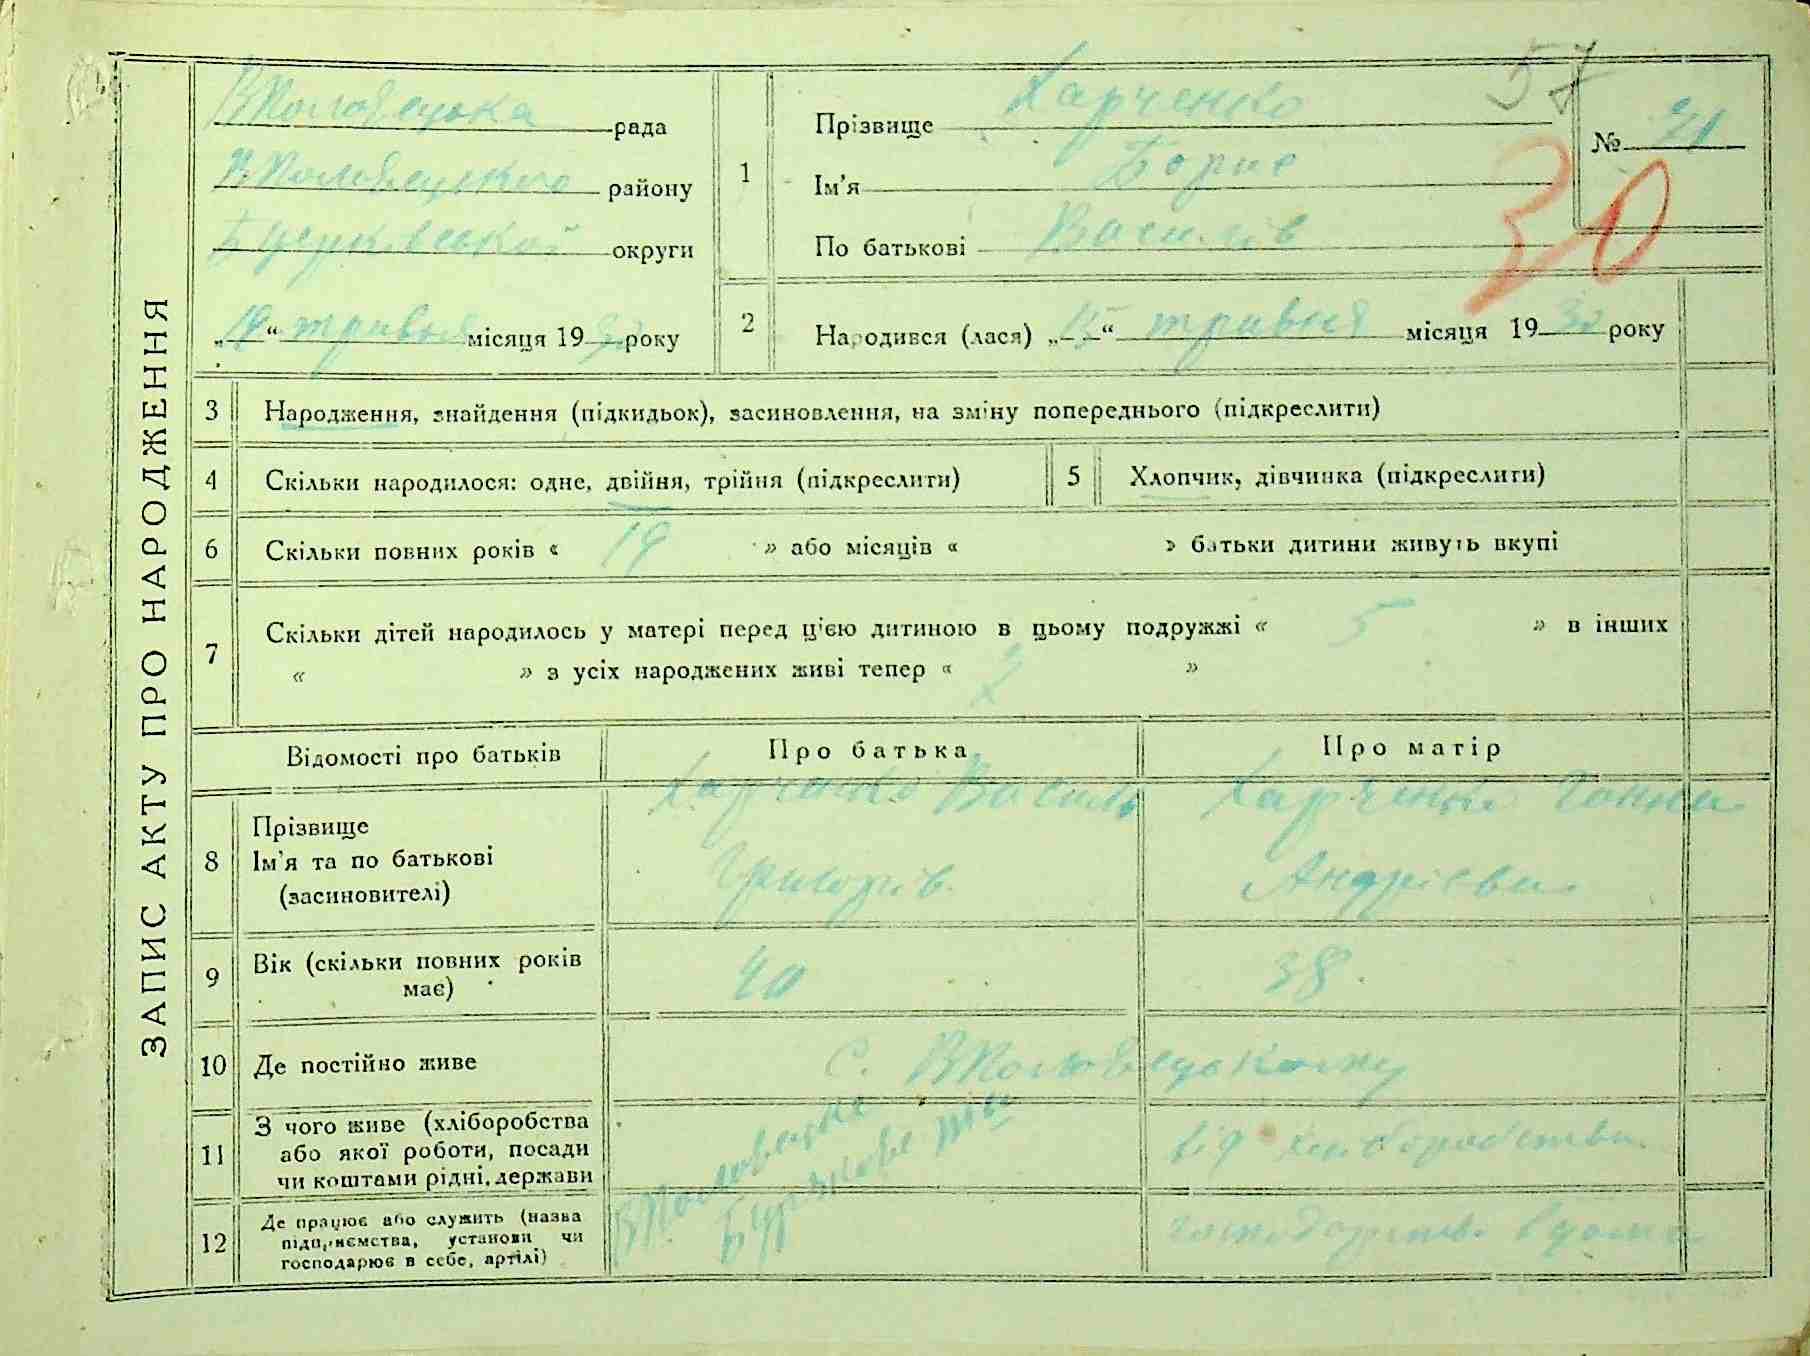 ЗАПИС АКТУ ПРО НАРОДЖЕННЯ
57
ВПоловецька рада
ВПоловецького району
БЦерківської округи
„19“ травня місяця 1930 року
1
Прізвище Харченко
Ім'я Борис
По батькові Василів
№ 21
30
2
Народився (лася) „15“ травня місяця 1930 року
3 Народження, знайдення (підкидьок), засиновлення, на зміну попереднього (підкреслити)
4 Скільки народилося: одне, двійня, трійня (підкреслити)
5 Хлопчик, дівчинка (підкреслити)
6 Скільки повних років « 19 » або місяців « » батьки дитини живуть вкупі
7 Скільки дітей народилось у матері перед цією дитиною в цьому подружжі « 5 » в інших
« » з усіх народжених живі тепер « »
Відомості про батьків Про батька Про матір
8 Прізвище
Ім'я та по батькові
(засиновителі)
Харченко Василь
Григорів
Харченко Ганна
Андрієва
9 Вік (скільки повних років
має)
40 38
10 Де постійно живе С. ВПоловецькому
11 З чого живе (хліборобства
або якої роботи, посади
чи коштами рідні, держави
від хліборобства
12 Де працює або служить (назва
підприємства, установи чи
господарює в себе, артілі)
ВПоловецьке
вдома